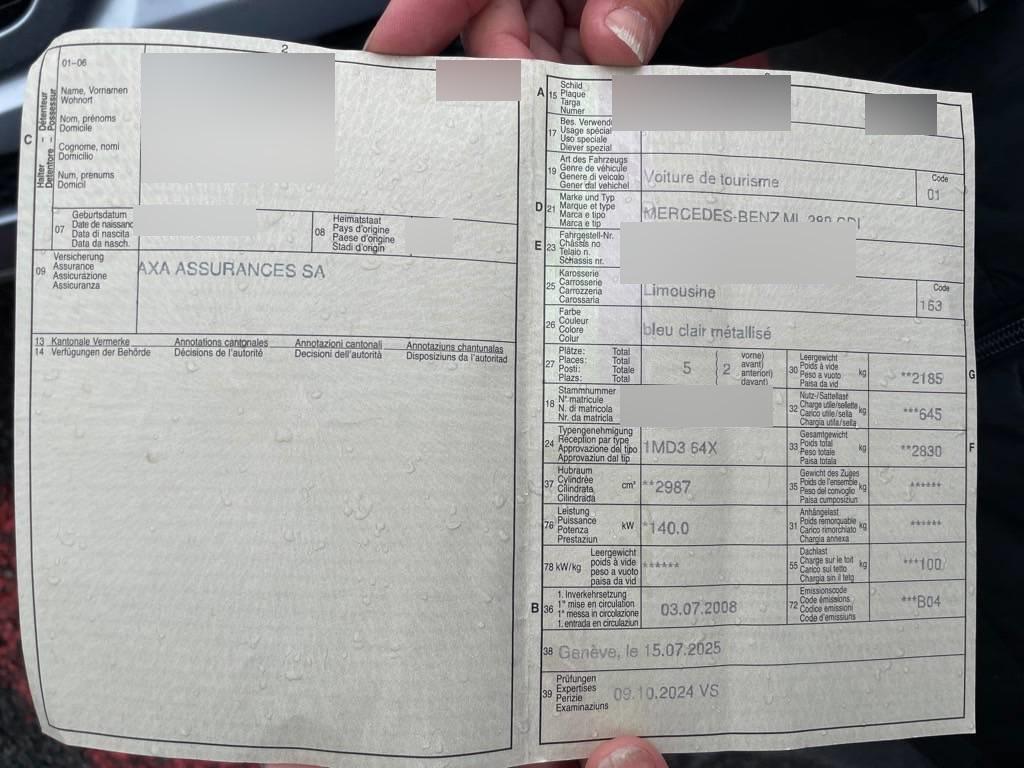 2
01-06
C
Halter - Détenteur
Detentore - Possessur
Name, Vornamen
Wohnort
Nom, prénoms
Domicile
Cognome, nomi
Domicilio
Num, prenums
Domicil
07
Geburtsdatum
Date de naissanc
Data di nascita
Data da nasch.
08
Heimatstaat
Pays d'origine
Paese d'origine
Stadi d'origin
09
Versicherung
Assurance
Assicurazione
Assicuranza
AXA ASSURANCES SA
13 Kantonale Vermerke Annotations cantonales Annotazioni cantonali Annotaziuns chantunalas
14 Verfügungen der Behörde Décisions de l'autorité Decisioni dell'autorità Disposiziuns da l'autoritad
A 15
Schild
Plaque
Targa
Numer
17
Bes. Verwend
Usage spécial
Uso speciale
Diever spezial
19
Art des Fahrzeugs
Genre de véhicule
Genere di veicolo
Gener dal vehichel
Voiture de tourisme
Code
01
D 21
Marke und Typ
Marque et type
Marca e tipo
Marca e tip
MERCEDES-BENZ ML 280 CDI
E 23
Fahrgestell-Nr.
Châssis no
Telaio n.
Schassis nr.
25
Karosserie
Carrosserie
Carrozzeria
Carossaria
Limousine
Code
163
26
Farbe
Couleur
Colore
Colur
bleu clair métallisé
27
Plätze: Total
Places: Total
Posti: Totale
Plazs: Total
5 ( 2
vorne)
avant)
anteriori)
davant)
30
Leergewicht
Poids à vide
Peso a vuoto
Paisa da vid
kg
**2185
G
18
Stammnummer
N° matricule
N. di matricola
Nr. da matricla
32
Nutz-/Sattellast
Charge utile/sellette
Carico utile/sella
Chargia utila/sella
kg
***645
24
Typengenehmigung
Réception par type
Approvazione del tipo
Approvaziun dal tip
1MD3 64X
33
Gesamtgewicht
Poids total
Peso totale
Paisa totala
kg
**2830
F
37
Hubraum
Cylindrée
Cilindrata
Cilindrada
cm³
**2987
35
Gewicht des Zuges
Poids de l'ensemble
Peso del convoglio
Paisa cumposiziun
kg
******
76
Leistung
Puissance
Potenza
Prestaziun
kW
*140.0
31
Anhängelast
Poids remorquable
Carico rimorchiato
Chargia annexa
kg
******
78 kW/kg
Leergewicht
poids à vide
peso a vuoto
paisa da vid
******
55
Dachlast
Charge sur le toit
Carico sul tetto
Chargia sin il tetg
kg
***100
B 36
1. Inverkehrsetzung
1re mise en circulation
1a messa in circolazione
1. entrada en circulaziun
03.07.2008
72
Emissionscode
Code émissions
Codice emissioni
Code d'emissiuns
***B04
38
Genève, le 15.07.2025
39
Prüfungen
Expertises
Perizie
Examinaziuns
09.10.2024 VS